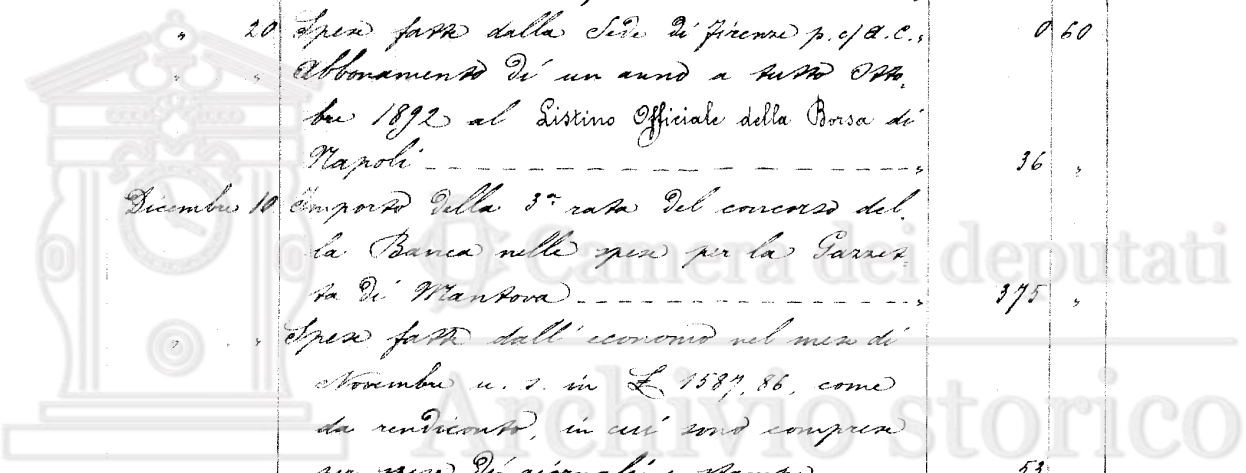 " 20 Spese fatte dalla Sede di Firenze p. c/ a. c. " 0 60
" " Abbonamento di un anno a tutto Otto-
bre 1892 al Listino Officiale della Borsa di
Napoli " 36 "
Dicembre 10 Importo della 3ª rata del concorso del-
la Banca nelle spese per la Gazzet-
ta di Mantova " 375 "
" " Spese fatte dall' economo nel mese di
Novembre u. s. in £ 1587,86, come
da rendiconto, in cui sono comprese
per spese di giornali e stampe 53
Camera dei deputati
Archivio storico